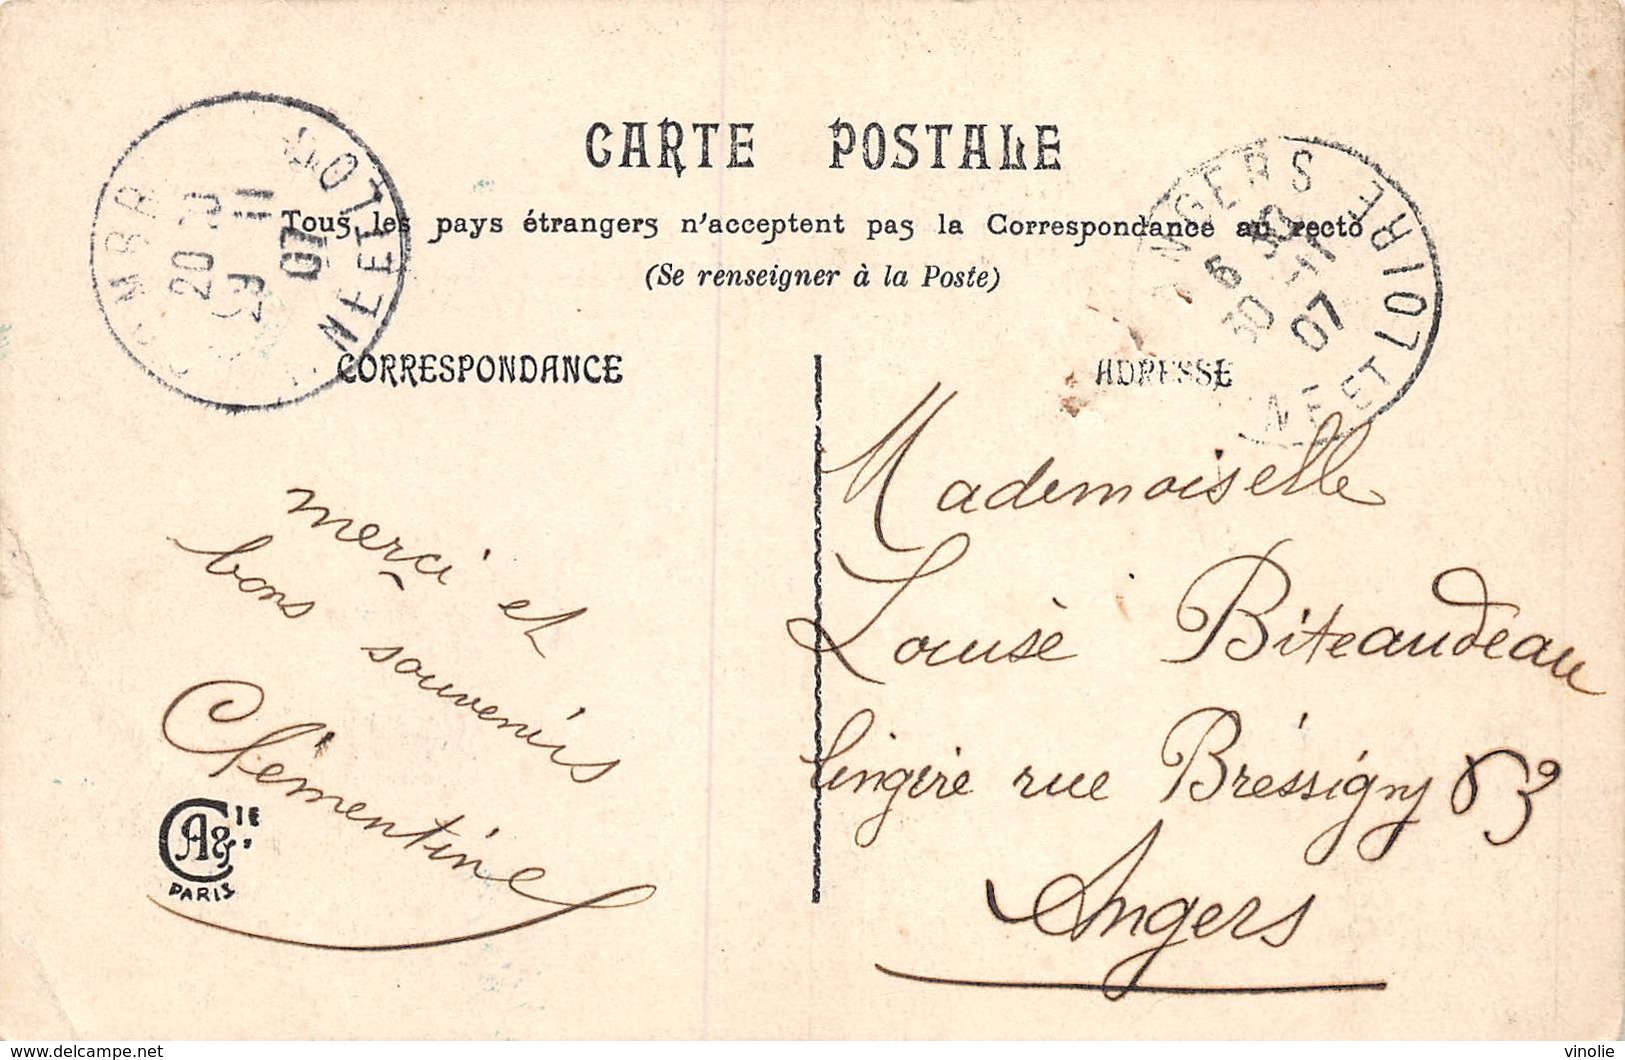 CARTE POSTALE
Tous les pays étrangers n'acceptent pas la Correspondance au recto
(Se renseigner à la Poste)
20
29 11
07
ANGERS
MAINE ET LOIRE
6 30
30 -11
07
CORRESPONDANCE
merci et
bons souvenirs
Clémentine
CA & IE
PARIS
ADRESSE
Mademoiselle
Louise Biteaudeau
lingère rue Bressigny 63
Angers
www.delcampe.net
vinolie